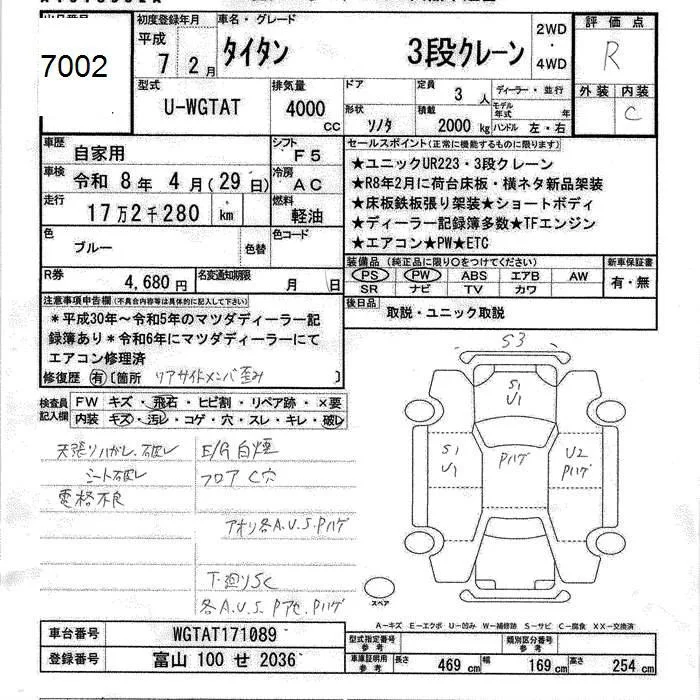 7002
初度登録年月
平成
7 2月
車名・グレード
タイタン 3段クレーン
2WD
・
4WD
評価点
R
型式
U-WGTAT
排気量
4000
CC
ドア
形状
ソノタ
定員
3 人
積載
2000 kg
ディーラー・並行
モデル年式 年
ハンドル 左・右
外装 内装
C
車歴
自家用
シフト
F5
車検
令和 8年 4月(29日)
冷房
AC
走行
17万2千280 km
燃料
軽油
色
ブルー
色替
色コード
R券
4,680円
名変通知期限
月 日
セールスポイント(正常に機能するものに限ります)
★ユニックUR223・3段クレーン
★R8年2月に荷台床板・横ネタ新品架装
★床板鉄板張り架装★ショートボディ
★ディーラー記録簿多数★TFエンジン
★エアコン★PW★ETC
装備品(純正品に限り○をつけてください)
PS PW ABS エアB AW
SR ナビ TV カワ
新車保証書
有・無
後日品
取説・ユニック取説
注意事項申告欄(不具合内容等は具体的に記入して下さい)
*平成30年~令和5年のマツダディーラー記
録簿あり*令和6年にマツダディーラーにて
エアコン修理済
修復歴 有 〔箇所 リアサイドメンバ歪み 〕
検査員記入欄
FW キズ・飛石・ヒビ割・リペア跡・×要
内装 キズ・汚レ・コゲ・穴・スレ・キレ・破レ
天張りハガレ、破レ
E/G白煙
シート破レ
フロアC穴
電格不良
アオリ各A.U.S.Pハゲ
T.廻りSC
各A.U.S.PアセPハゲ
S3
S1
U1
S1
U1
Pハゲ
U2
Pハゲ
スペア
A-キズ E-エクボ U-凹み W-補修跡 S-サビ C-腐食 XX-交換済
車台番号
WGTAT171089
登録番号
富山 100 せ 2036
型式指定番号
参考
類別区分番号
参考
車庫証明用
参考
長さ 469 cm 幅 169 cm 高さ 254 cm